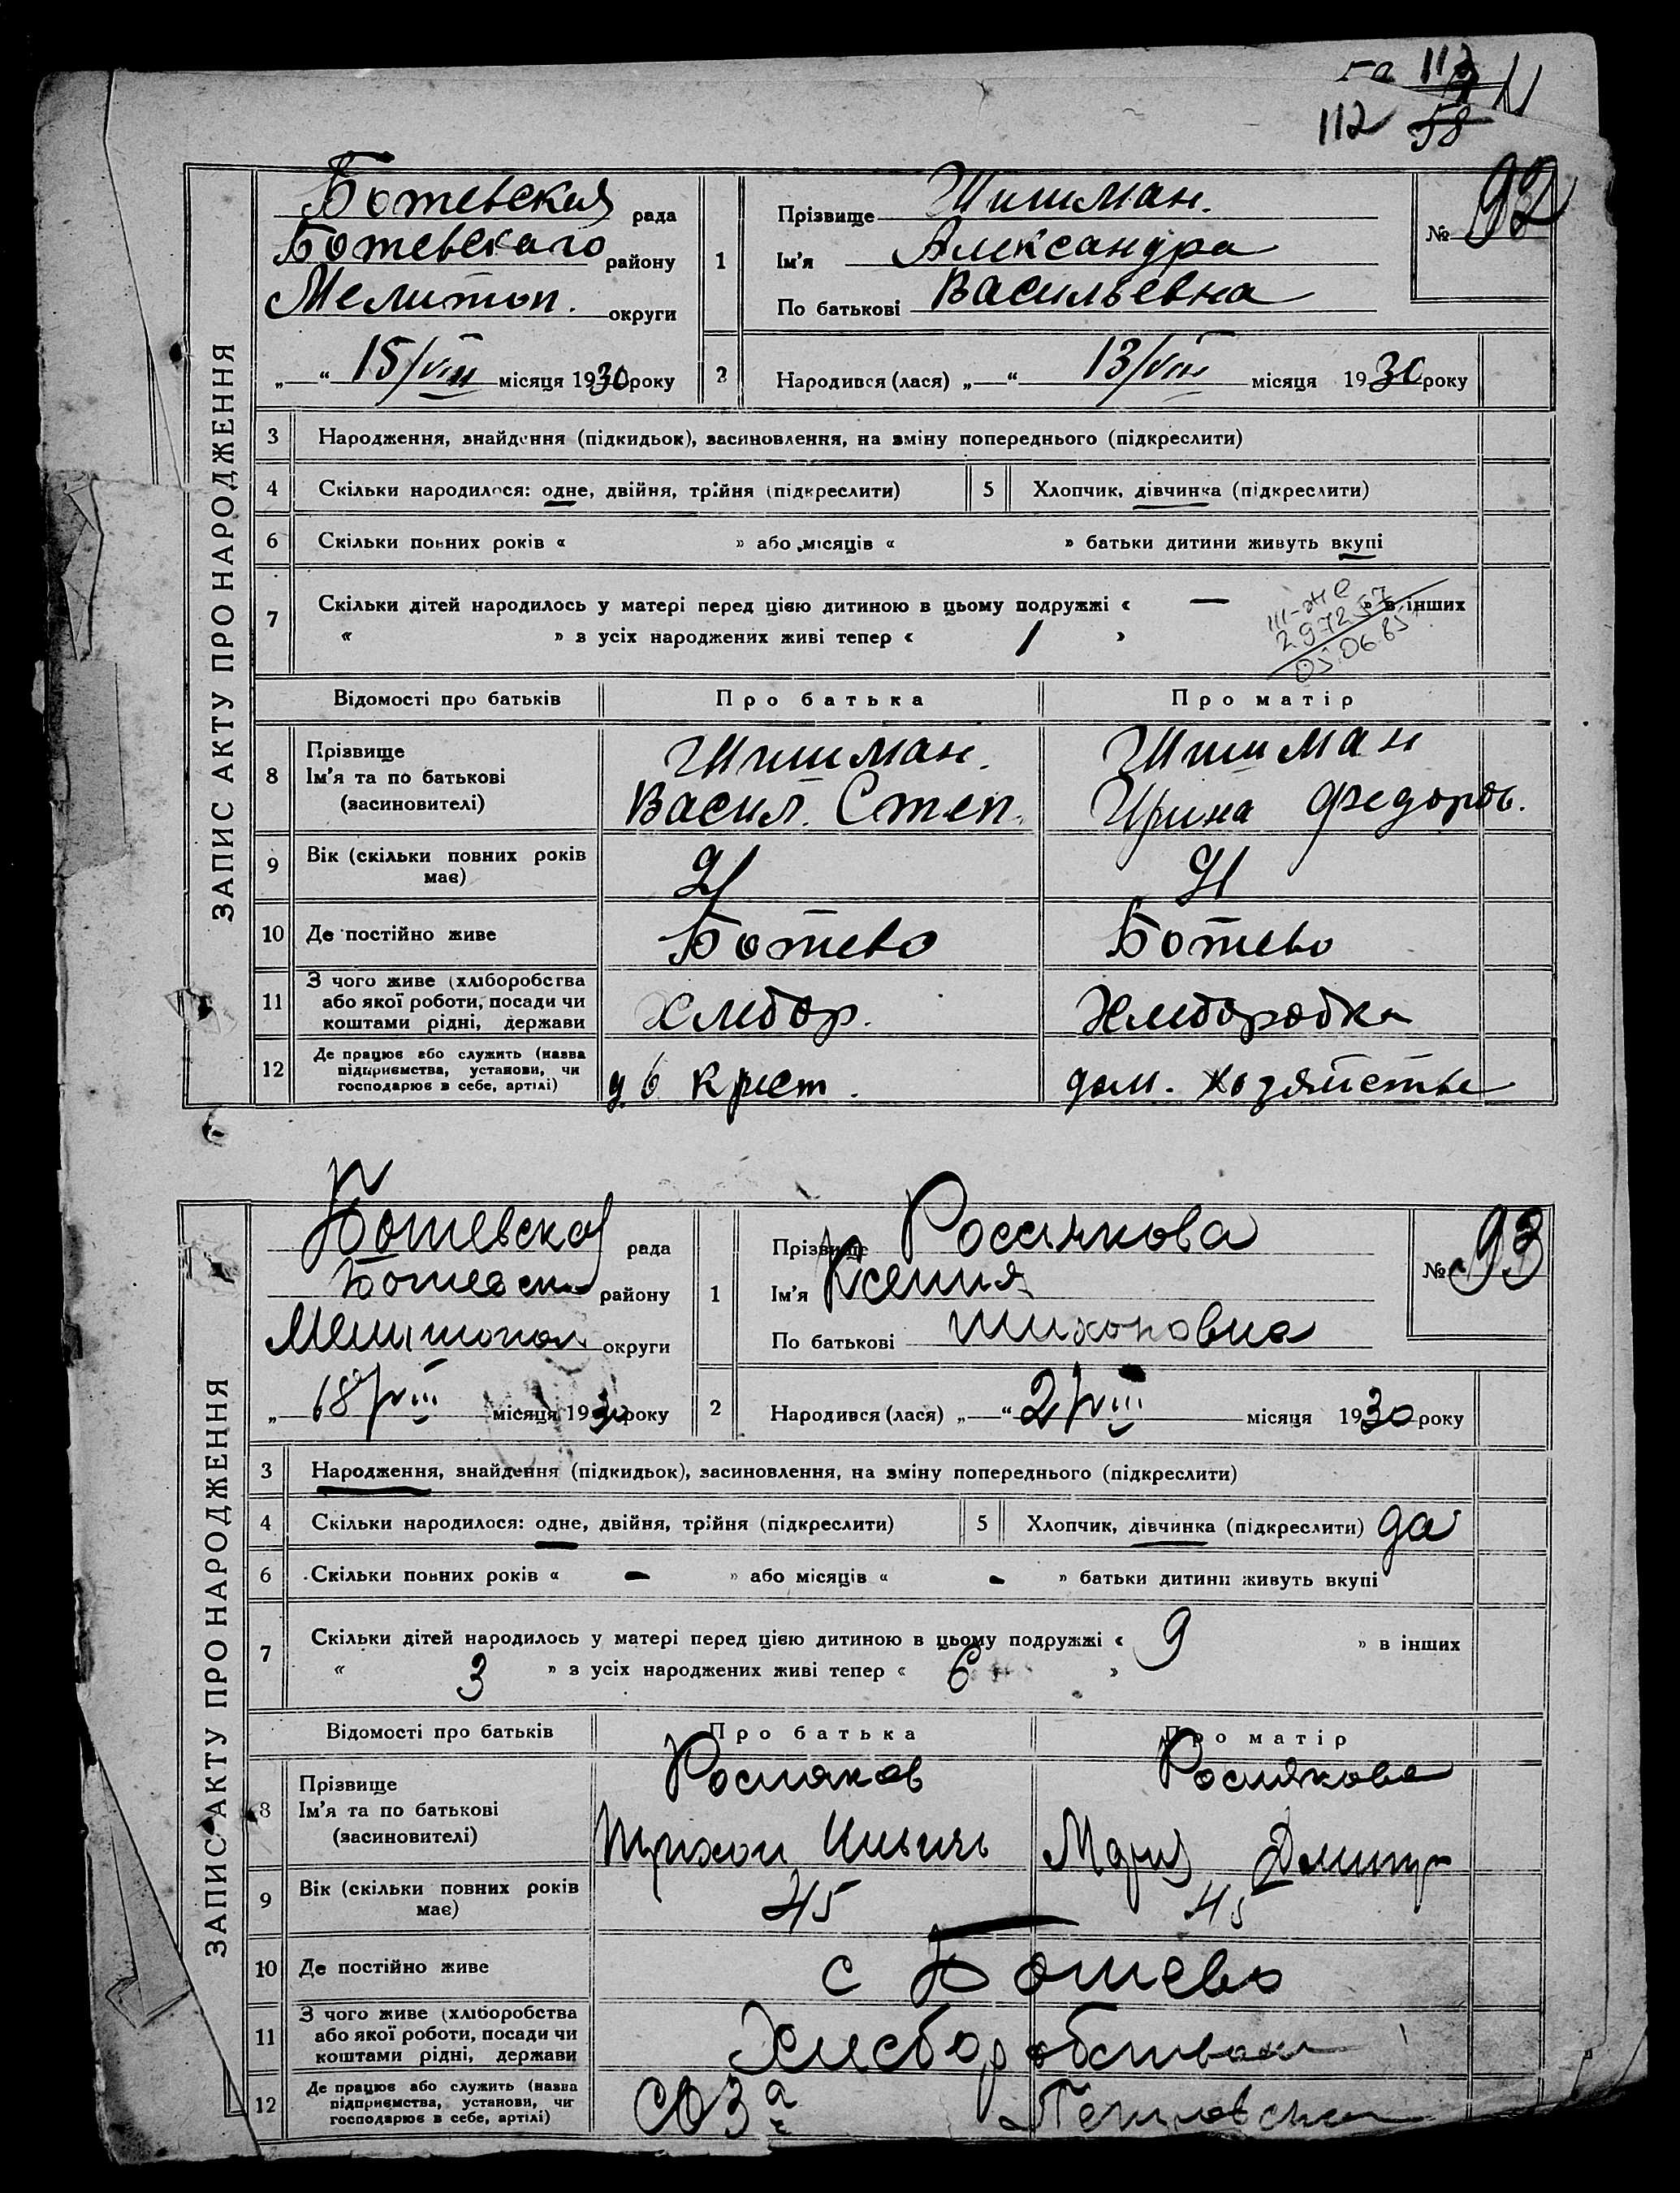 112
112 58
ЗАПИС АКТУ ПРО НАРОДЖЕННЯ
Ботевская рада
Ботевскаго району
Мелитоп. округи
„—“ 15/VIII місяця 1930 року
1
Прізвище Шишман.
Ім'я Александра
По батькові Васильевна
№ 92
2
Народився (лася) „—“ 13/VIII місяця 1930 року
3 Народження, знайдення (підкидьок), засиновлення, на зміну попереднього (підкреслити)
4 Скільки народилося: одне, двійня, трійня (підкреслити)
5 Хлопчик, дівчинка (підкреслити)
6 Скільки повних років « » або місяців « » батьки дитини живуть вкупі
7 Скільки дітей народилось у матері перед цією дитиною в цьому подружжі « — » в інших
« » з усіх народжених живі тепер « 1 »
III-ЖС
297257
03.06.85
Відомості про батьків Про батька Про матір
8 Прізвище Шишман. Шишман
Ім'я та по батькові Васил. Степ. Ирина Федоров.
(засиновителі)
9 Вік (скільки повних років має) 21 21
10 Де постійно живе Ботево Ботево
11 З чого живе (хліборобства
або якої роботи, посади чи Хлебор. Хлеборобка
коштами рідні, держави
12 Де працює або служить (назва
підприємства, установи, чи крест. дом. хозяйстве
господарює в себе, артілі)
ЗАПИС АКТУ ПРО НАРОДЖЕННЯ
Ботевская рада
Ботевск району
Мелитопол. округи
„—“ 18/VIII місяця 1930 року
1
Прізвище Рослякова
Ім'я Ксения
По батькові Тихоновна
№ 93
2
Народився (лася) „—“ 2/VIII місяця 1930 року
3 Народження, знайдення (підкидьок), засиновлення, на зміну попереднього (підкреслити)
4 Скільки народилося: одне, двійня, трійня (підкреслити)
5 Хлопчик, дівчинка (підкреслити) да
6 Скільки повних років « - » або місяців « - » батьки дитини живуть вкупі
7 Скільки дітей народилось у матері перед цією дитиною в цьому подружжі « 9 » в інших
« 3 » з усіх народжених живі тепер « 6 »
Відомості про батьків Про батька Про матір
8 Прізвище Росляков Рослякова
Ім'я та по батькові Тихон Ильичь Мария Дмитр
(засиновителі)
9 Вік (скільки повних років має) 45 45
10 Де постійно живе с Ботево
11 З чого живе (хліборобства
або якої роботи, посади чи Хлеборобством
коштами рідні, держави
12 Де працює або служить (назва
підприємства, установи, чи СОЗ
господарює в себе, артілі)